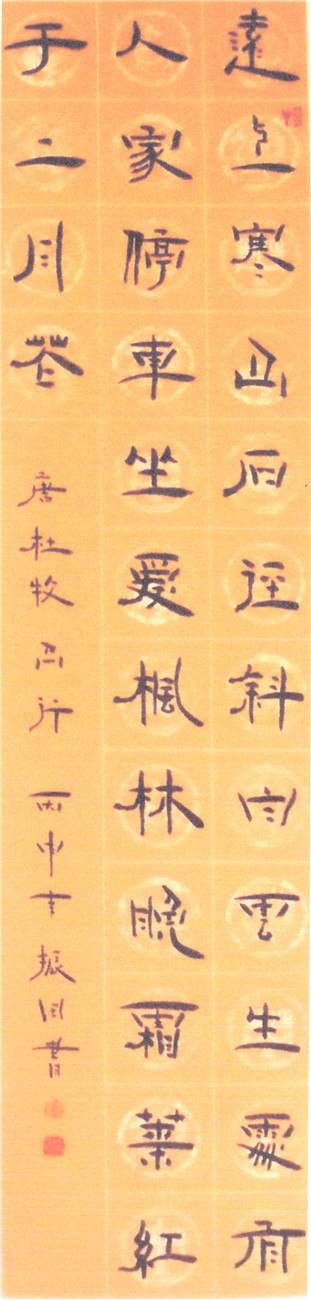 遠上寒山石徑斜白雲生處有
人家停車坐愛楓林晚霜葉紅
于二月花
唐杜牧山行 丙申 振国書